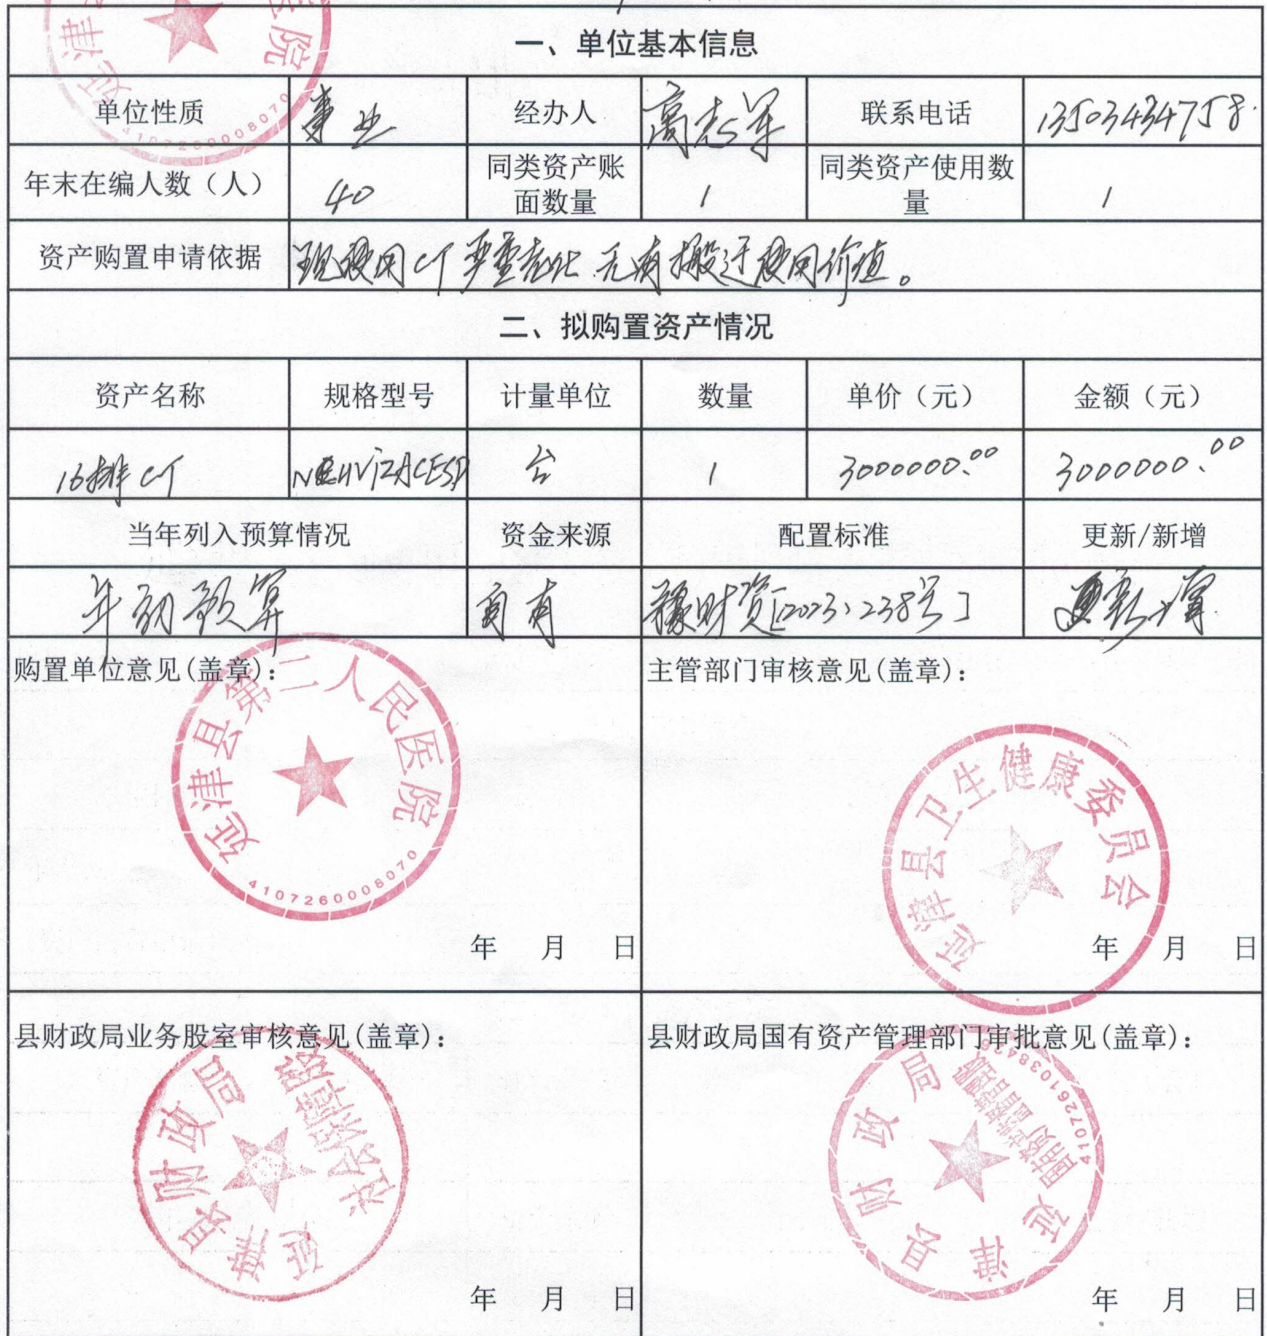 一、单位基本信息
单位性质 事业 经办人 高志军 联系电话 13503434758.
年末在编人数（人） 40 同类资产账面数量 1 同类资产使用数量 1
资产购置申请依据 现使用CT严重老化 无有搬迁使用价值。
二、拟购置资产情况
资产名称 规格型号 计量单位 数量 单价（元） 金额（元）
16排CT 台 1 3000000.00 3000000.00
当年列入预算情况 资金来源 配置标准 更新/新增
年初预算 自有 豫财资[2023、238号]
购置单位意见(盖章)：
延津县第二人民医院
4107260008070
年 月 日
主管部门审核意见(盖章)：
延津县卫生健康委员会
年 月 日
县财政局业务股室审核意见(盖章)：
延津县财政局
社会保障股
年 月 日
县财政局国有资产管理部门审批意见(盖章)：
延津县财政局
年 月 日